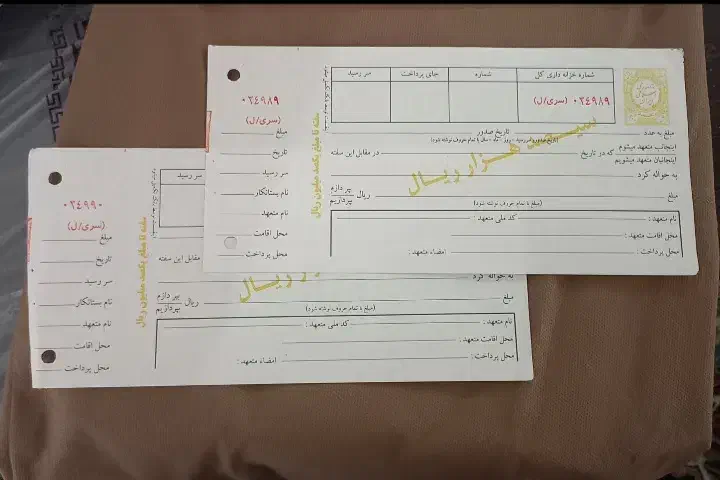 شماره خزانه داری کل
شماره
جای پرداخت
سر رسید
۰۲۴۹۸۹ (سری/ل)
سیصد هزار ریال
مبلغ به عدد
تاریخ صدور
اینجانب متعهد میشوم
اینجانبان متعهد میشویم
که در تاریخ
در مقابل این سفته
به حواله کرد
مبلغ
ریال
بپردازم
بپردازیم
(مبلغ با تمام حروف نوشته شود)
نام متعهد :
کد ملی متعهد :
محل اقامت متعهد :
محل پرداخت :
امضاء متعهد :
سفته تا مبلغ یکصد میلیون ریال
۰۲۴۹۸۹
(سری/ل)
مبلغ
تاریخ
سر رسید
نام بستانکار
نام متعهد
محل اقامت
محل پرداخت
سر رسید
مقابل این سفته
به حواله کرد
ریال
مبلغ
ریال
بپردازم
بپردازیم
(مبلغ با تمام حروف نوشته شود)
نام متعهد :
کد ملی متعهد :
محل اقامت متعهد :
محل پرداخت :
امضاء متعهد :
سفته تا مبلغ یکصد میلیون ریال
۰۲۴۹۹۰
(سری/ل)
مبلغ
تاریخ
سر رسید
نام بستانکار
نام متعهد
محل اقامت
محل پرداخت